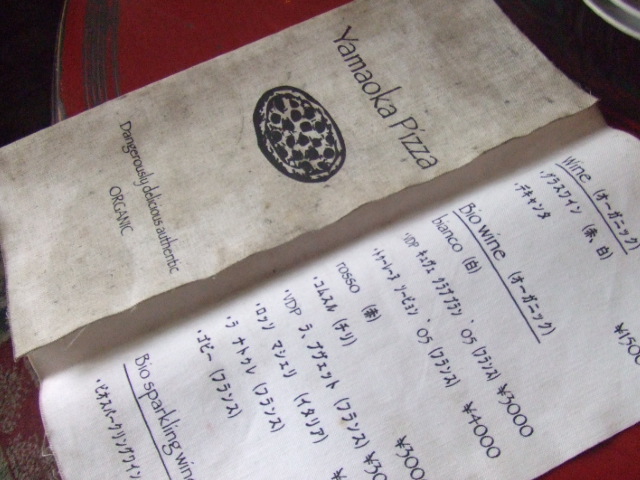 Yamaoka Pizza
Dangerously delicious authentic
ORGANIC
Wine (オーガニック)
・グラスワイン (赤、白)
・デキャンタ ¥1500
Bio wine (オーガニック)
bianco (白)
・VDP キュヴェ クラブラン '05 (フランス) ¥3000
'05 (フランス) ¥4000
rosso (赤)
・コムスル (チリ) ¥300
・VDP ラ、プザェット (フランス) ¥30
・ロッソ マシェリ (イタリア) ¥
・ラ ナトゥレ (フランス)
・ゴビー (フランス)
Bio sparkling wine
・ビオスパークリングワイン